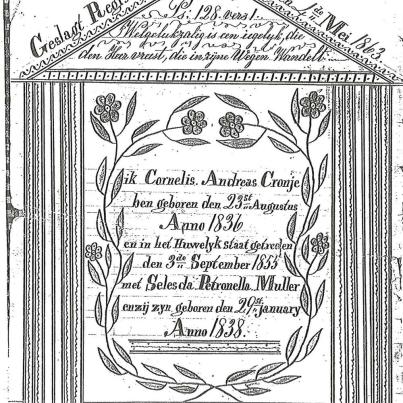 Geslagt Reg
Mei 1863
Ps. 128. vers 1.
Welgelukzalig is een iegelyk, die
den Heer vreest, die in zijne Wegen Wandelt.
ik Cornelis. Andreas Cronje
ben geboren den 23st Augustus
Anno 1836
en in het Huwelyk staat getreden
den 3de September 1855
met Selesda Petronella Muller
en zij zyn geboren den 29st January
Anno 1838.